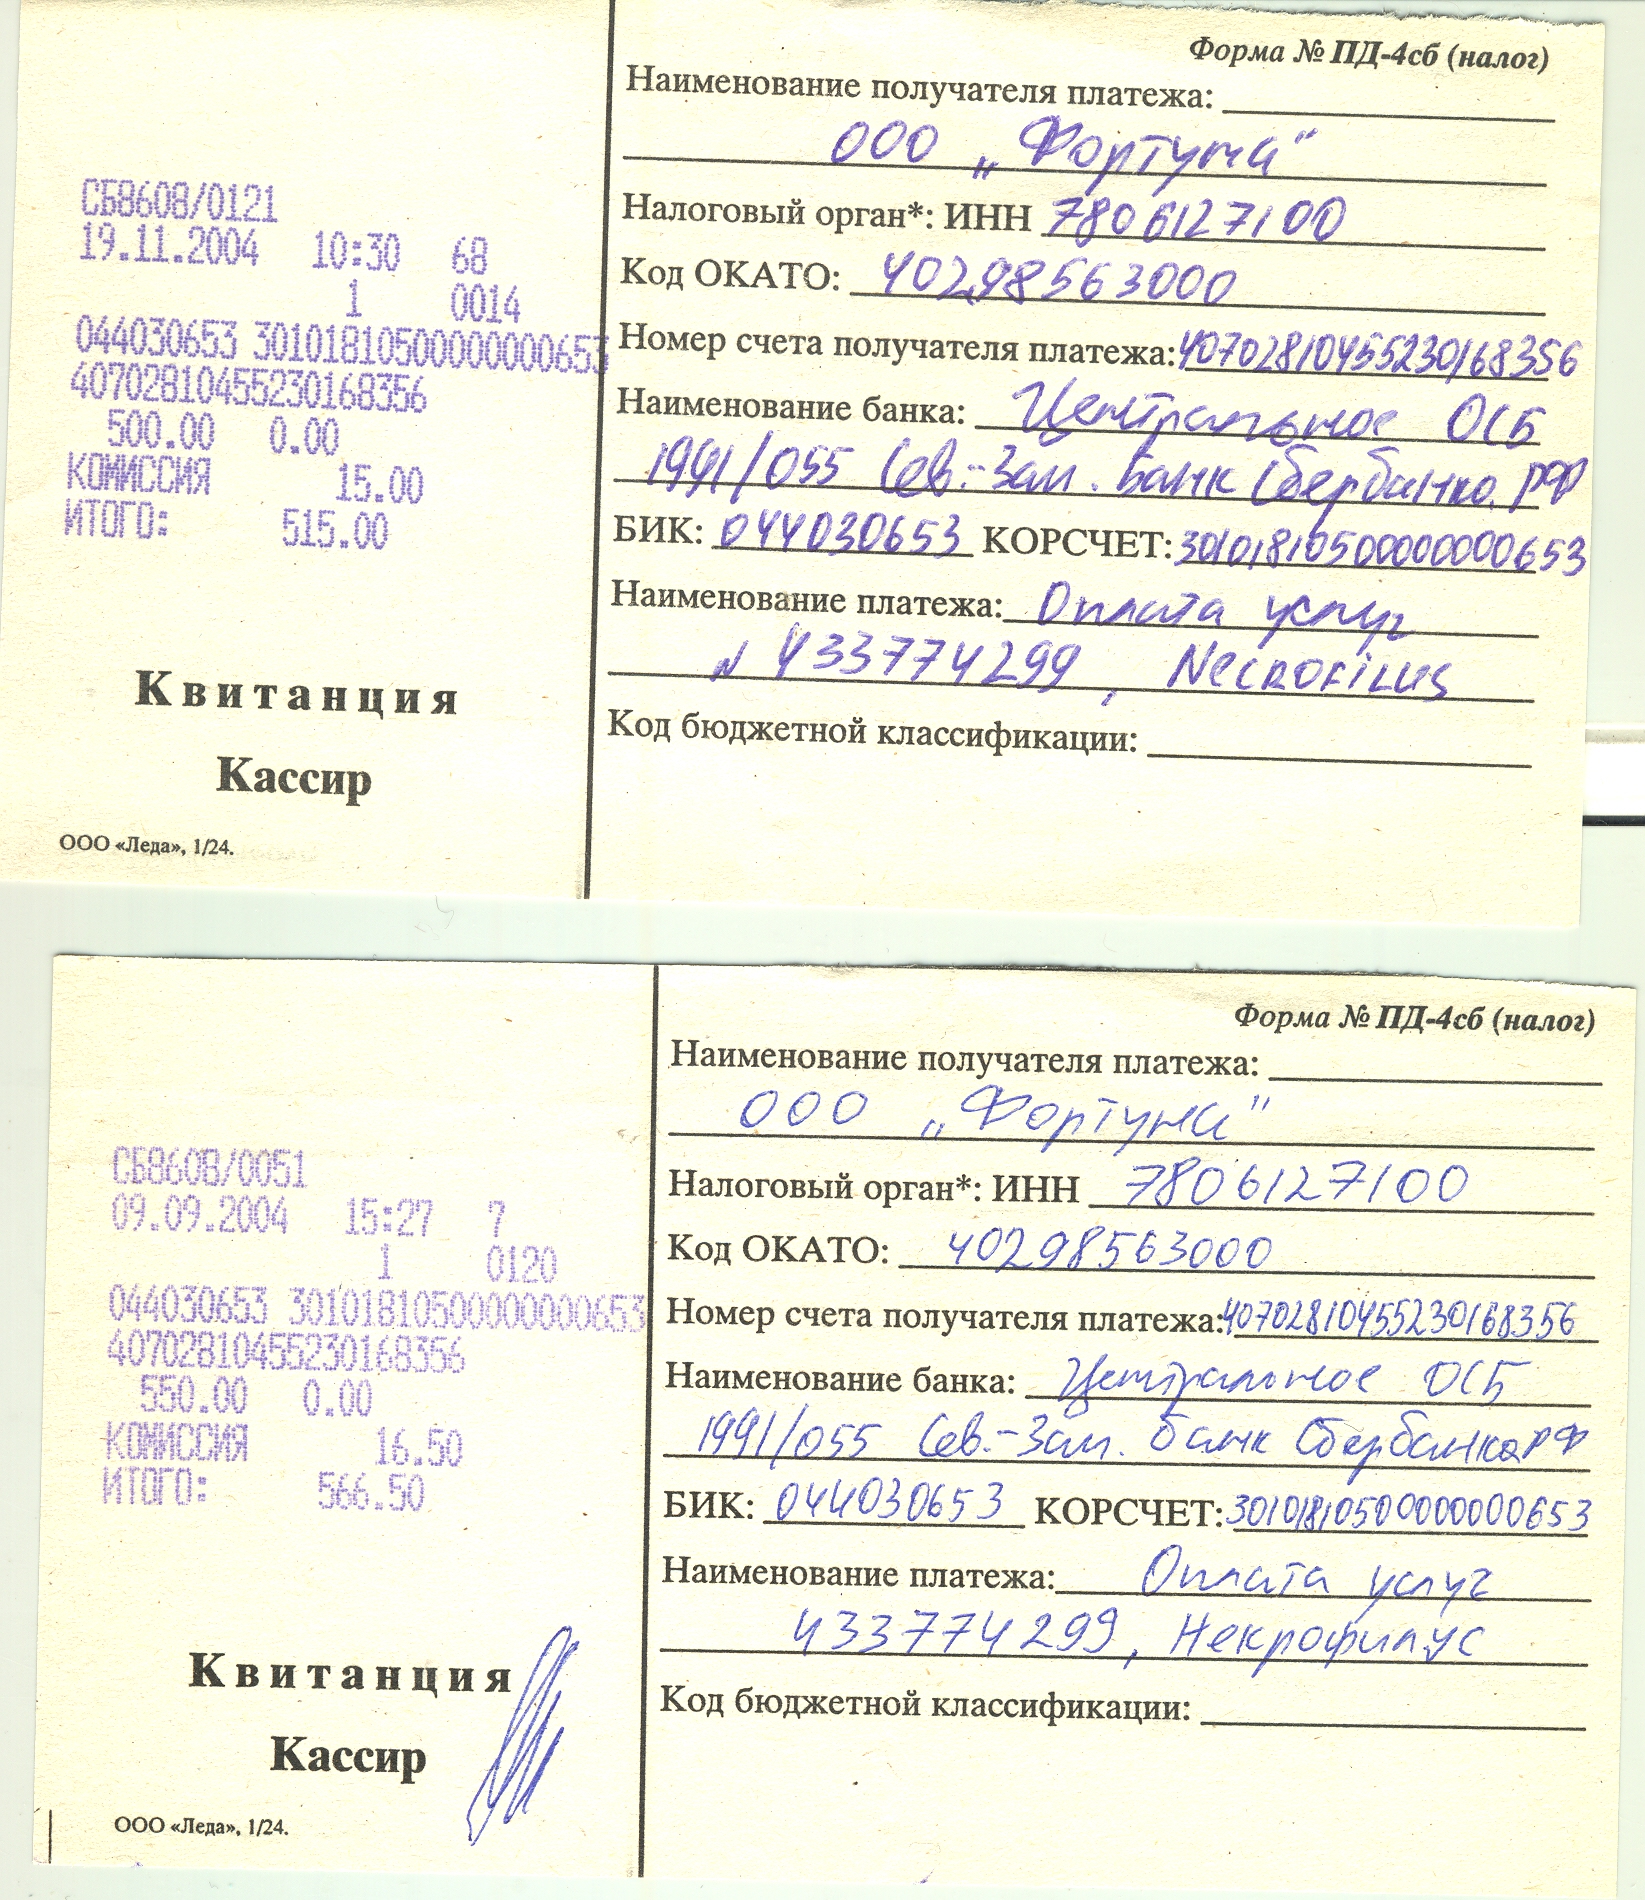 Форма № ПД-4сб (налог)
Наименование получателя платежа:
ООО „Фортуна"
Налоговый орган*: ИНН 7806127100
Код ОКАТО: 40298563000
Номер счета получателя платежа: 40702810455230168356
Наименование банка: Центральное ОСБ
1991/055 Сев.-Зап. Банк Сбербанка РФ
БИК: 044030653 КОРСЧЕТ: 30101810500000000653
Наименование платежа: Оплата услуг
N 433774299, Necrofilus
Код бюджетной классификации:
СБ8608/0121
19.11.2004 10:30 68
1 0014
044030653 30101810500000000653
40702810455230168356
500.00 0.00
КОМИССИЯ 15.00
ИТОГО: 515.00
Квитанция
Кассир
ООО «Леда», 1/24.
Форма № ПД-4сб (налог)
Наименование получателя платежа:
ООО „Фортуна"
Налоговый орган*: ИНН 7806127100
Код ОКАТО: 40298563000
Номер счета получателя платежа: 40702810455230168356
Наименование банка: Центральное ОСБ
1991/055 Сев.-Зап. банк Сбербанка РФ
БИК: 044030653 КОРСЧЕТ: 30101810500000000653
Наименование платежа: Оплата услуг
433774299, Некрофилус
Код бюджетной классификации:
СБ8608/0051
09.09.2004 15:27 7
1 0120
044030653 30101810500000000653
40702810455230168356
550.00 0.00
КОМИССИЯ 16.50
ИТОГО: 566.50
Квитанция
Кассир
ООО «Леда», 1/24.